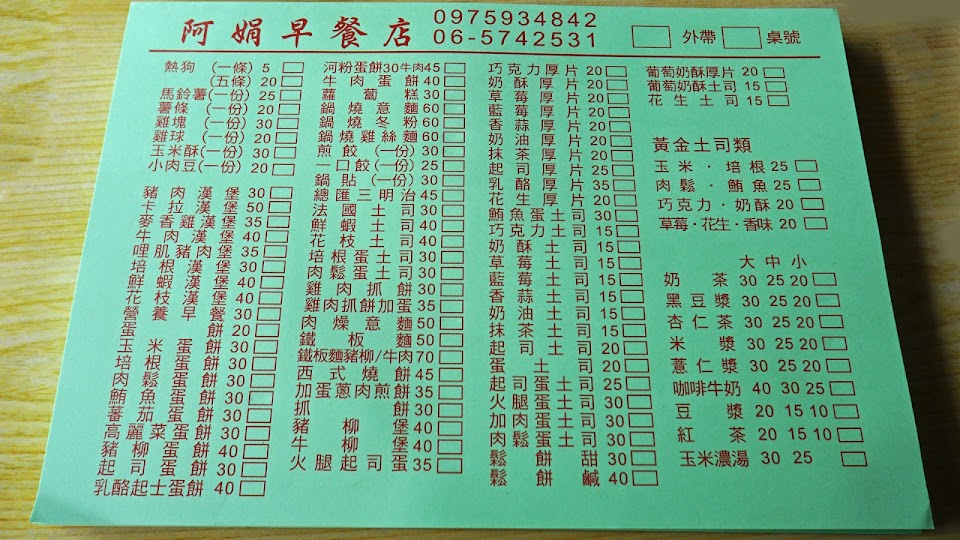 阿娟早餐店 0975934842
06-5742531 外帶 桌號
熱狗 (一條) 5
(五條) 20
馬鈴薯(一份) 25
薯條 (一份) 20
雞塊 (一份) 30
雞球 (一份) 20
玉米酥(一份) 30
小肉豆(一份) 20
豬肉漢堡 30
卡拉漢堡 50
麥香雞漢堡 35
牛肉漢堡 40
哩肌豬肉堡 35
培根漢堡 30
鮮蝦漢堡 40
花枝漢堡 40
營養早餐 30
蛋餅 20
玉米蛋餅 30
培根蛋餅 30
肉鬆蛋餅 30
鮪魚蛋餅 30
蕃茄蛋餅 30
高麗菜蛋餅 30
豬柳蛋餅 40
起司蛋餅 30
乳酪起士蛋餅 40
河粉蛋餅30牛肉45
牛肉蛋餅 40
蘿蔔糕 30
鍋燒意麵 60
鍋燒冬粉 60
鍋燒雞絲麵 60
煎餃 (一份) 30
一口餃(一份) 25
鍋貼 (一份) 30
總匯三明治 45
法國土司 30
鮮蝦土司 40
花枝土司 40
培根蛋土司 30
肉鬆蛋土司 30
雞肉抓餅 30
雞肉抓餅加蛋 35
肉燥意麵 50
鐵板麵 50
鐵板麵豬柳/牛肉 70
西式燒餅 45
加蛋蔥肉煎餅 35
抓餅 30
豬柳堡 40
牛柳堡 40
火腿起司蛋 35
巧克力厚片 20
奶酥厚片 20
草莓厚片 20
藍莓厚片 20
香蒜厚片 20
奶油厚片 20
抹茶厚片 20
起司厚片 25
乳酪厚片 35
花生厚片 20
鮪魚蛋土司 30
巧克力土司 15
奶酥土司 15
草莓土司 15
藍莓土司 15
香蒜土司 15
奶油土司 15
抹茶土司 15
起司土司 20
蛋土司 20
起司蛋土司 25
火腿蛋土司 30
加肉蛋土司 30
肉鬆蛋土司 30
鬆餅甜 30
鬆餅鹹 40
葡萄奶酥厚片 20
葡萄奶酥土司 15
花生土司 15
黃金土司類
玉米·培根 25
肉鬆·鮪魚 25
巧克力·奶酥 20
草莓·花生·香味 20
大中小
奶茶 30 25 20
黑豆漿 30 25 20
杏仁茶 30 25 20
米漿 30 25 20
薏仁漿 30 25 20
咖啡牛奶 40 30 25
豆漿 20 15 10
紅茶 20 15 10
玉米濃湯 30 25